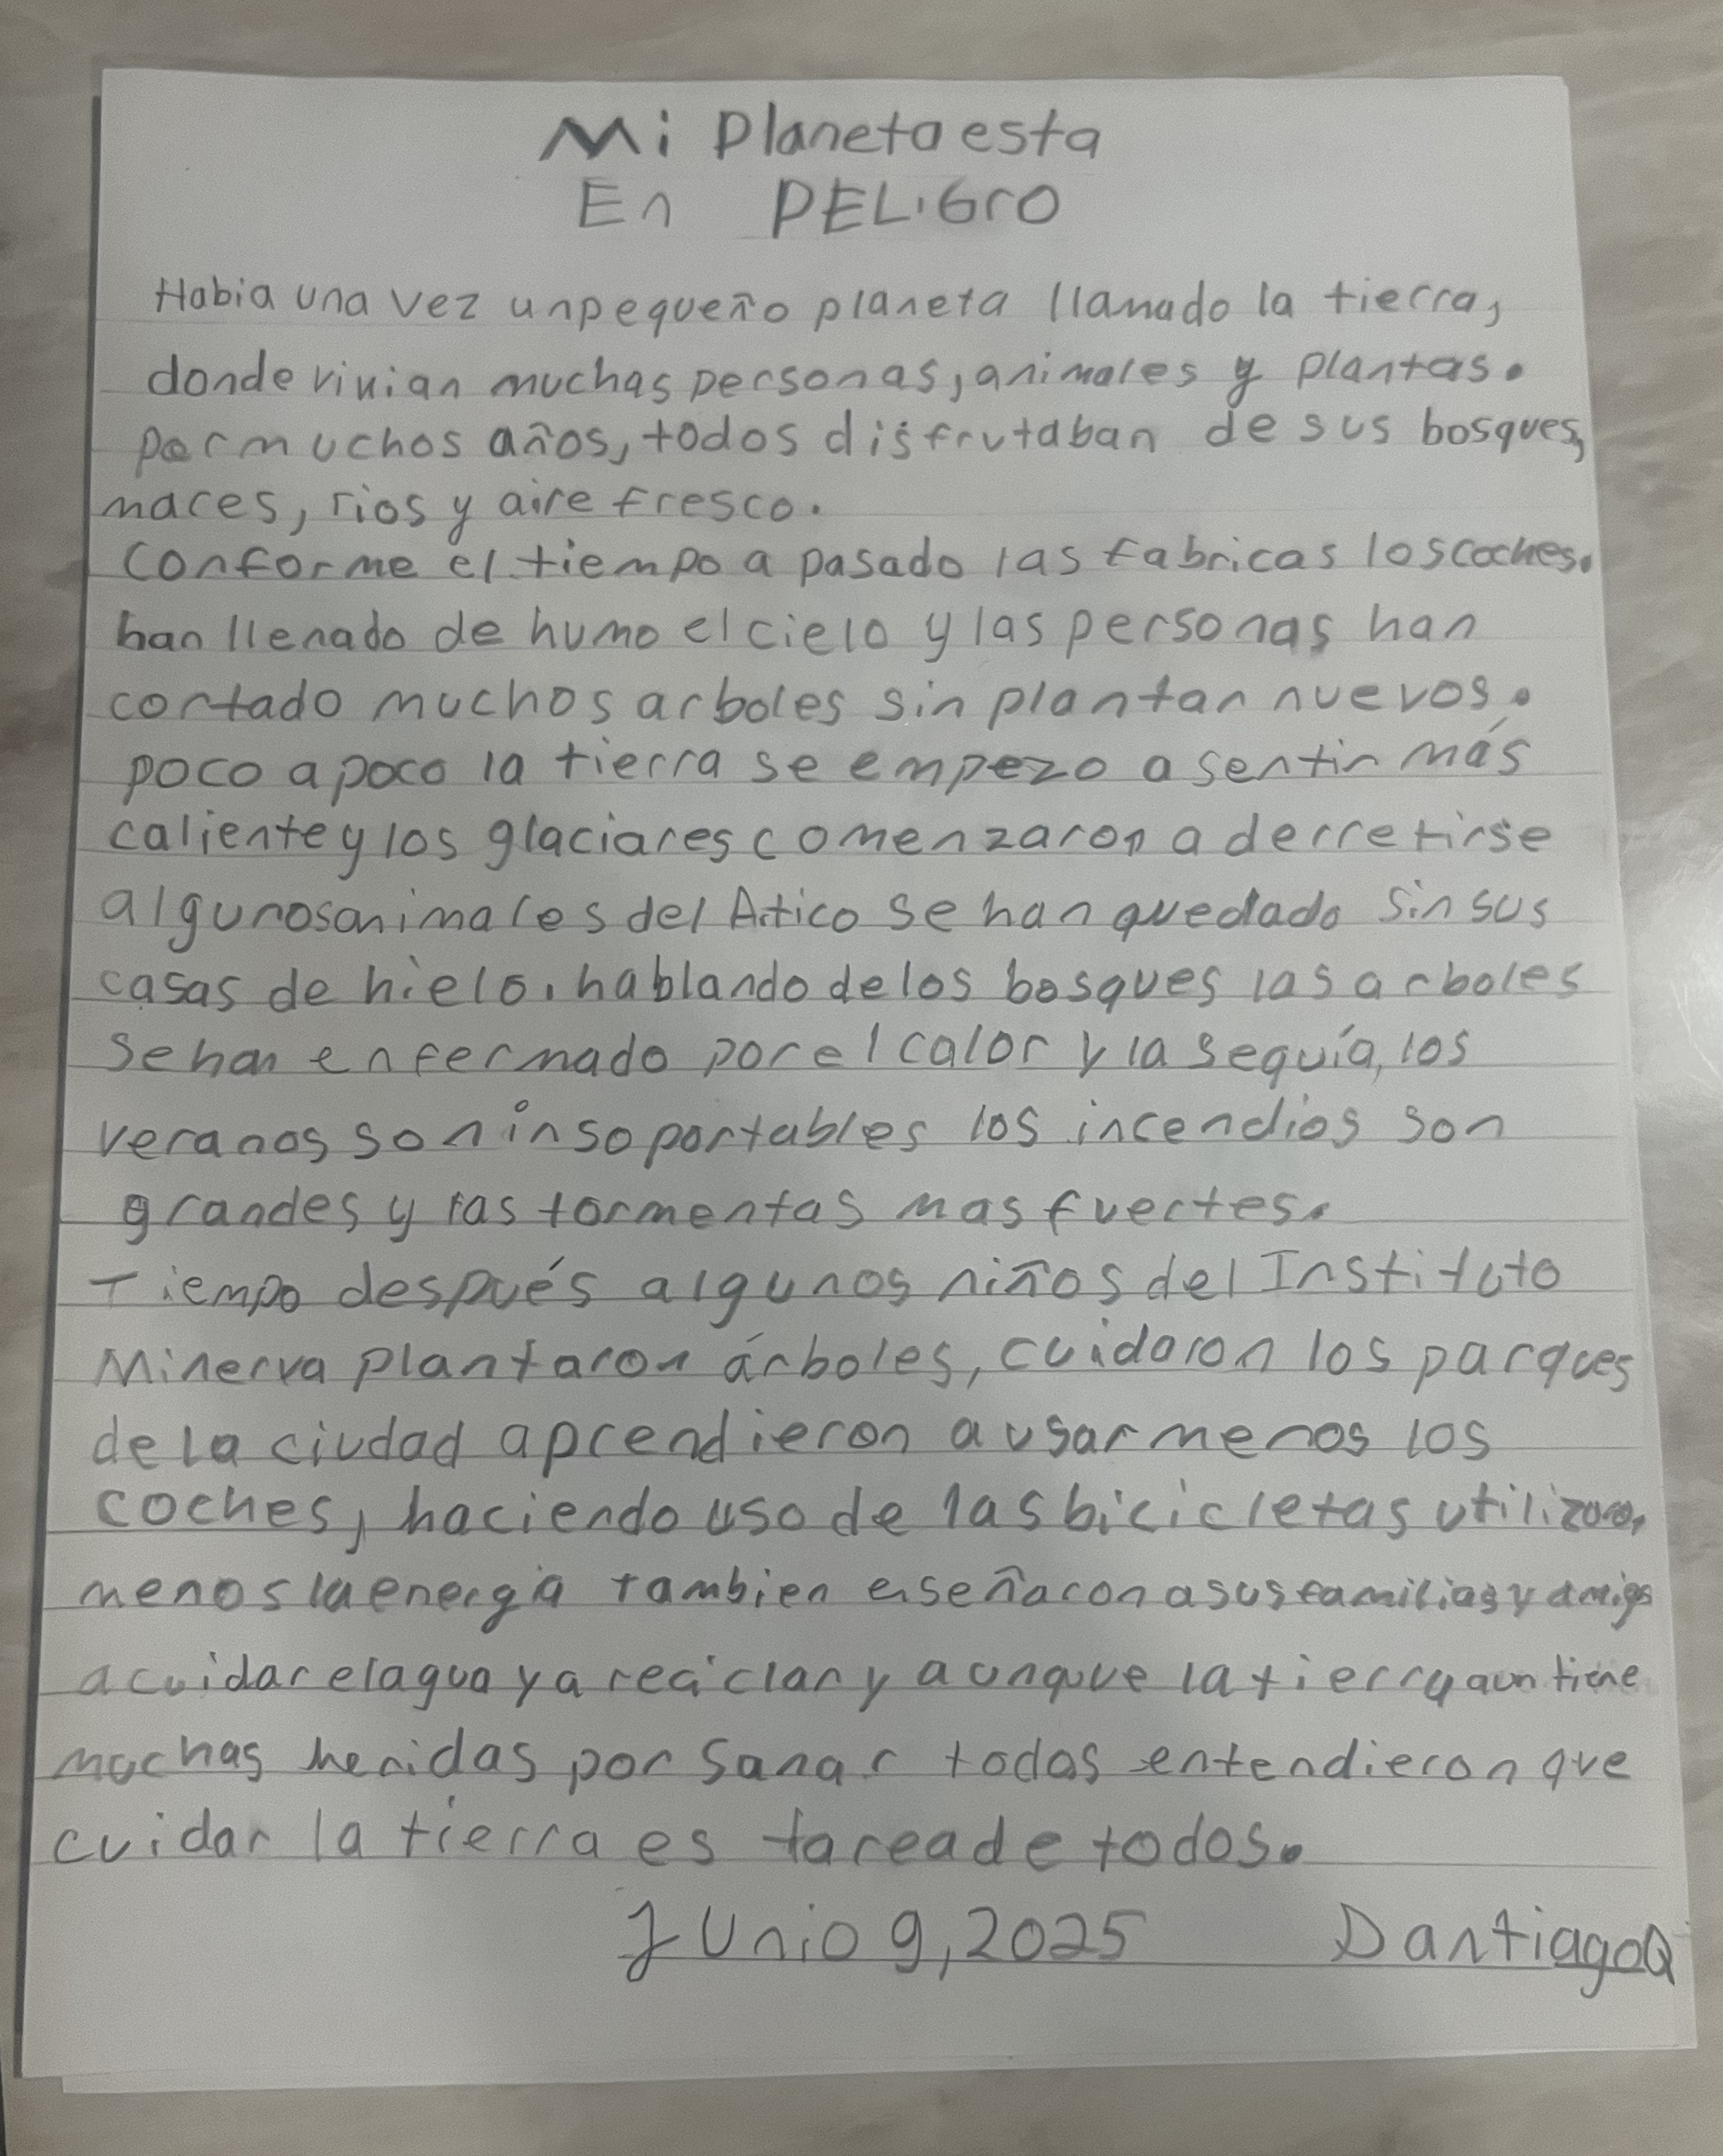 Mi planeta esta
En PELiGrO
Habia una vez un pequeño planeta llamado la tierra,
donde vivian muchas personas, animales y plantas.
por muchos años, todos disfrutaban de sus bosques,
mares, rios y aire fresco.
conforme el tiempo a pasado las fabricas los coches.
han llenado de humo el cielo y las personas han
cortado muchos arboles sin plantar nuevos.
poco a poco la tierra se empezo a sentir más
caliente y los glaciares comenzaron a derretirse
algunos animales del Artico se han quedado sin sus
casas de hielo. hablando de los bosques las arboles
se han enfermado por el calor y la sequía, los
veranos son insoportables los incendios son
grandes y las tormentas mas fuertes.
Tiempo después algunos niños del Instituto
Minerva plantaron árboles, cuidaron los parques
de la ciudad aprendieron a usar menos los
coches, haciendo uso de las bicicletas utilizaron
menos la energia tambien enseñaron a sus familias y amigos
a cuidar el agua y a reciclar y aunque la tierra aun tiene
muchas heridas por sanar todos entendieron que
cuidar la tierra es tarea de todos.
Junio 9, 2025 Dantiago Q